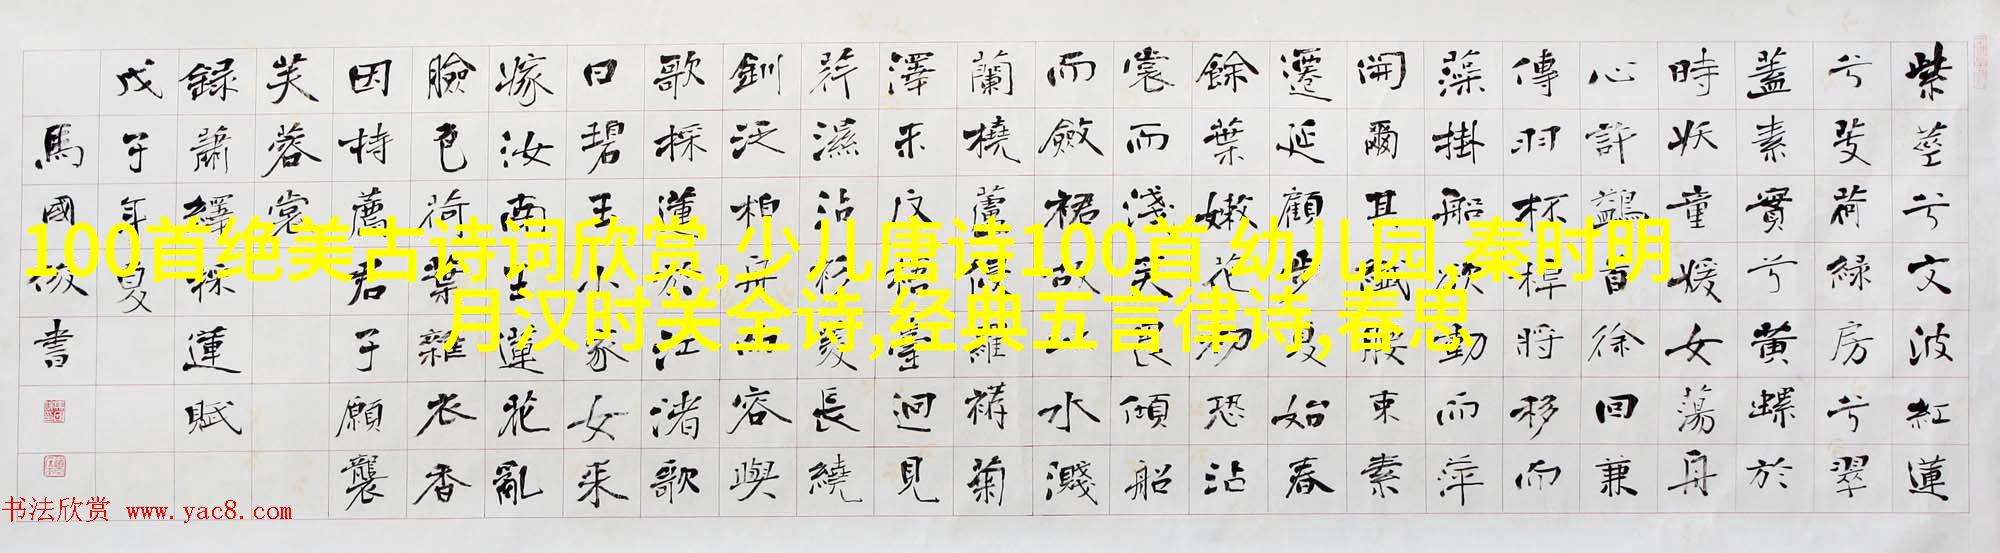 紫莖兮文波紅蓮
兮芰荷綠房兮翠
蓋素實兮黃螺於
時妖童媛女蕩舟
心許鷁首徐回兼
傳羽杯棹將移而
藻掛船欲動而萍
開爾其纖腰束素
遷延顧步夏始春
餘葉嫩花初恐沾
裳而淺笑畏傾船
而斂裾故以水濺
蘭橈蘆侵羅菊
澤未反梧臺迥見
荇濕沾衫菱長繞
釧泛柏舟而容與
歌採蓮於江渚歌
曰碧玉小家女來
嫁汝南王蓮花亂
臉色荷葉雜衣香
因持薦君子願襲
芙蓉裳
錄蕭繹採蓮賦
戊子年夏
馬國俊書
100首绝美古诗词欣赏,少儿唐诗100首 幼儿园,秦时明
月汉时关全诗,经典五言律诗,春思
书法欣赏 www.yac8.com